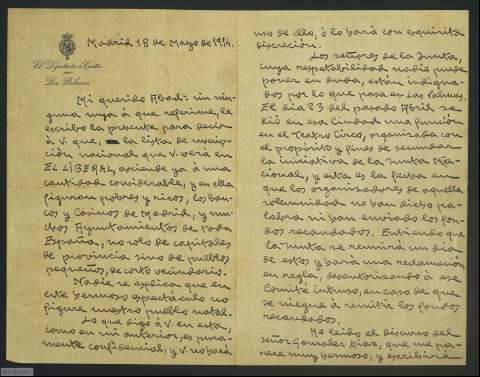 El Diputado á Cortes
por
Las Palmas
Madrid 18 de Mayo de 1914.
Mi querido Abad: sin nin-
guna suya á que referirme, le
escribo la presente para decir
á V. que, la lista de suscrip-
ción nacional que V. verá en
EL LIBERAL, asciende ya á una
cantidad considerable, y en ella
figuran pobres y ricos, los ban-
cos y Casinos de Madrid, y mu-
chos Ayuntamientos de toda
España, no solo de capitales
de provincia sino de pueblos
pequeños, de corto vecindario.
Nadie se explica que en
este hermoso espectáculo no
figure nuestro pueblo natal.
Lo que digo á V. en esta,
como en mi anterior, es pura-
mente confidencial, y V. no hará
uso de ello, ó lo hará con exquisita
discreción.
Los señores de la Junta,
cuya respetabilidad nadie puede
poner en duda, están indigna-
dos por lo que pasa en Las Palmas.
El dia 23 del pasado Abril se
dió en esa Ciudad una función
en el Teatro Circo, organizada con
el propósito y fines de secundar
la iniciativa de la Junta Na-
cional, y esta es la fecha en
que los organizadores de aquella
solemnidad no han dicho pa-
labra ni han enviado los fon-
dos recaudados. Entiendo que
la Junta se reunirá un dia
de estos y hará una reclamación
en regla, desautorizando á ese
Comité intruso, en caso de que
se niegue á remitir los fondos
recaudados.
He leido el discurso del
señor Gonzalez Diaz, que me pa-
rece muy hermoso, y escribiré